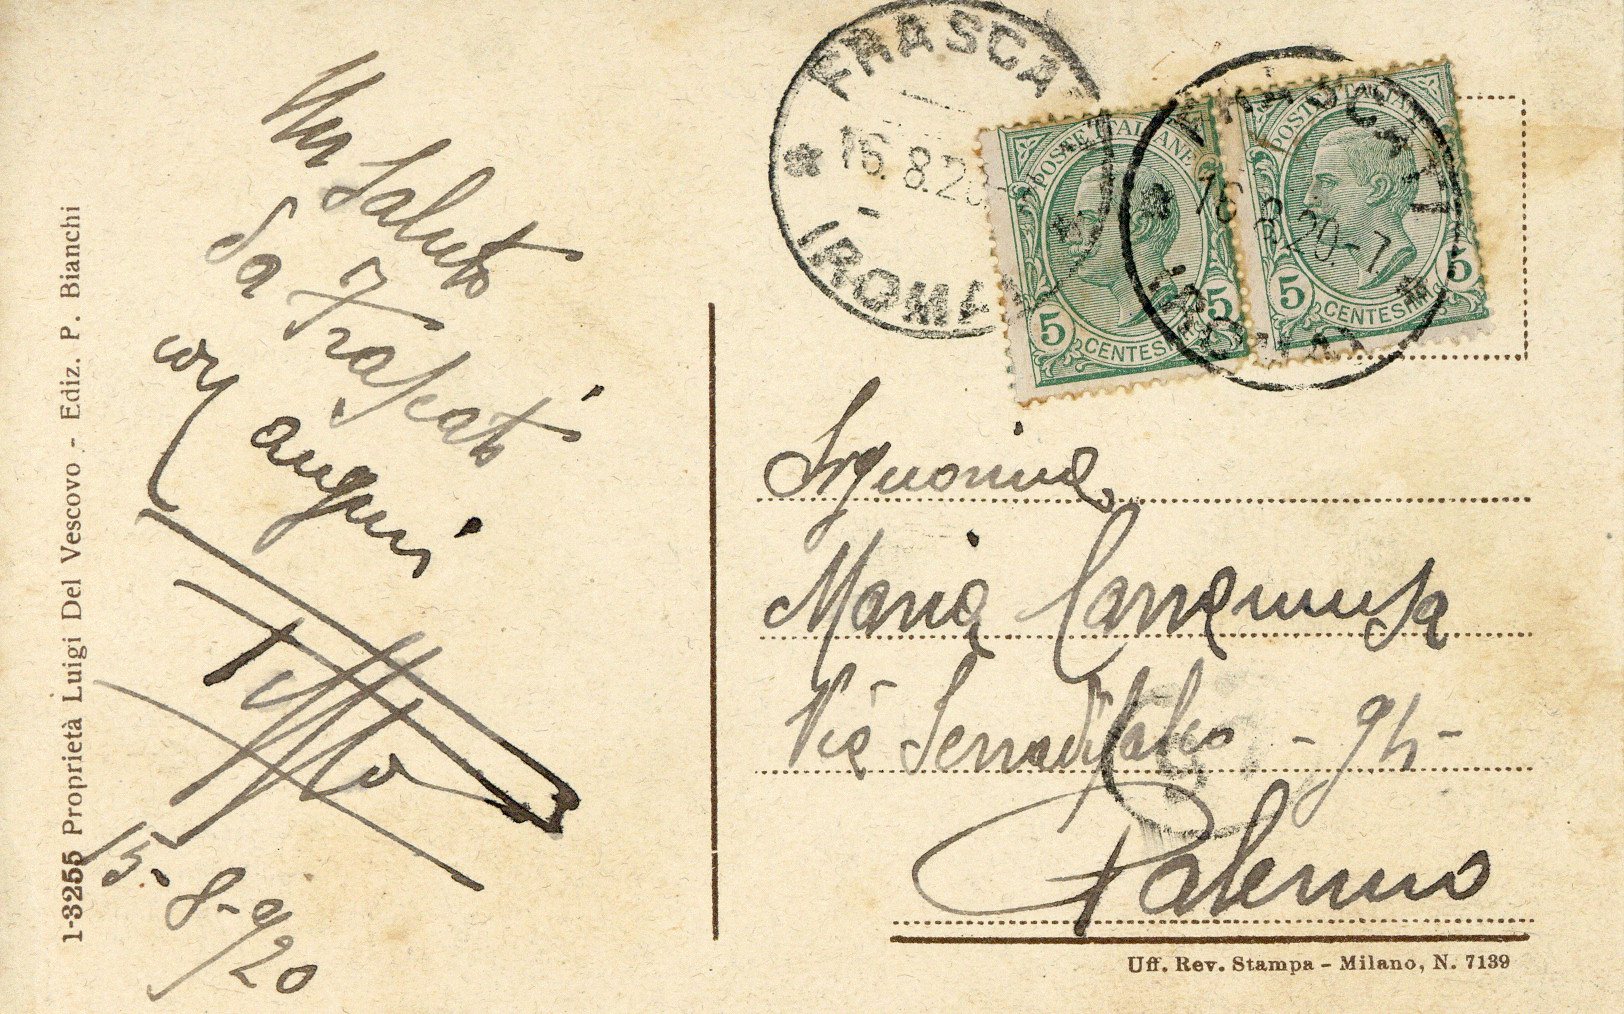 Un Saluto
da Frascati
con
auguri
15-8-920
1-3255 Proprietà Luigi Del Vescovo - Ediz. P. Bianchi
FRASCATI
16.8.20
(ROMA)
POSTE ITALIANE
5 CENTESIMI 5
FRASCATI
16.8.20-7
(ROMA)
POSTE ITALIANE
5 CENTESIMI 5
Signorina
Maria Cannamusa
Via Serradifalco - 94-
Palermo
Uff. Rev. Stampa - Milano, N. 7139